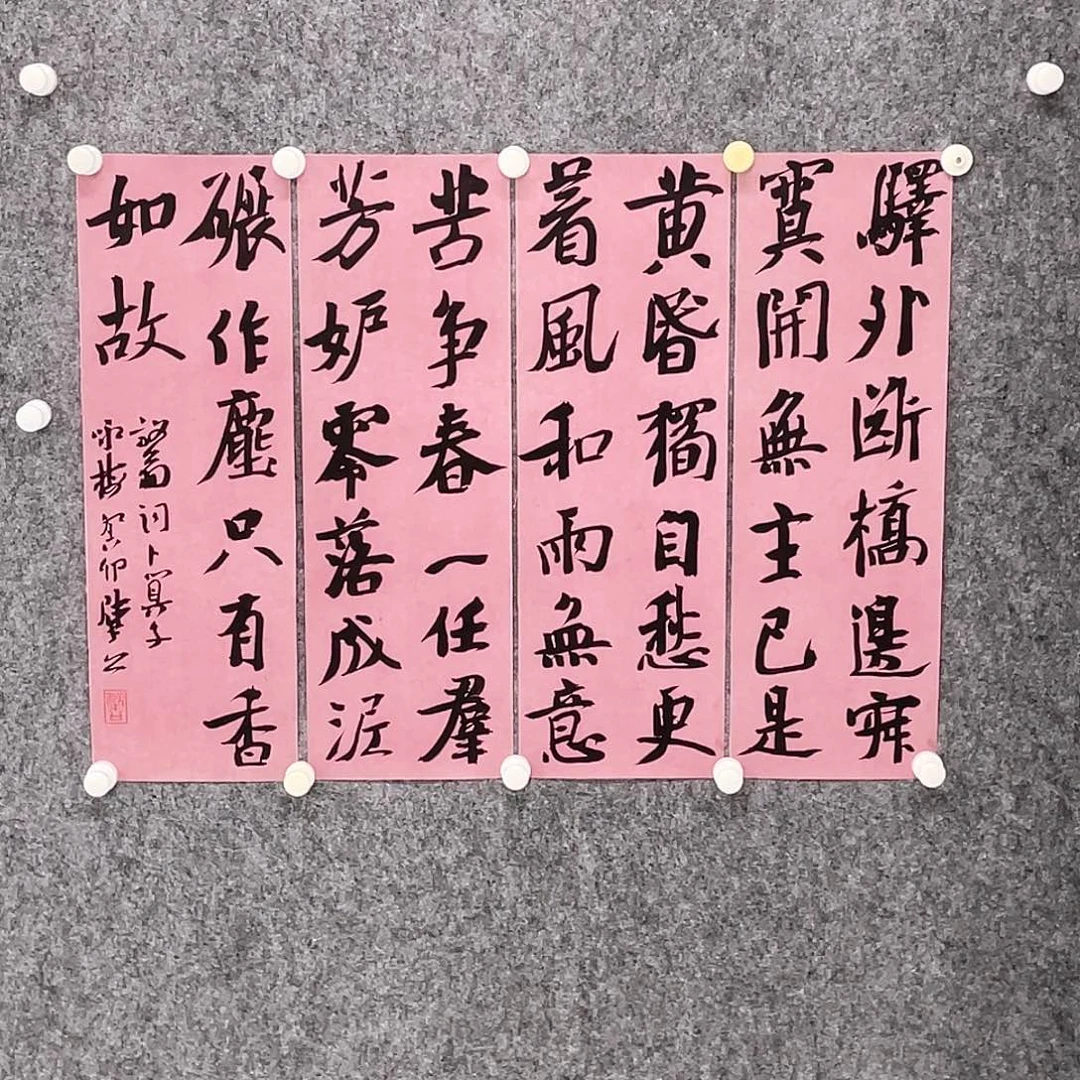 驛外斷橋邊寂
寞開無主已是
黄昬獨自愁更
着風和雨無意
苦争春一任羣
芳妒零落成泥
碾作塵只有香
如故
詞卜算子
咏梅癸卯